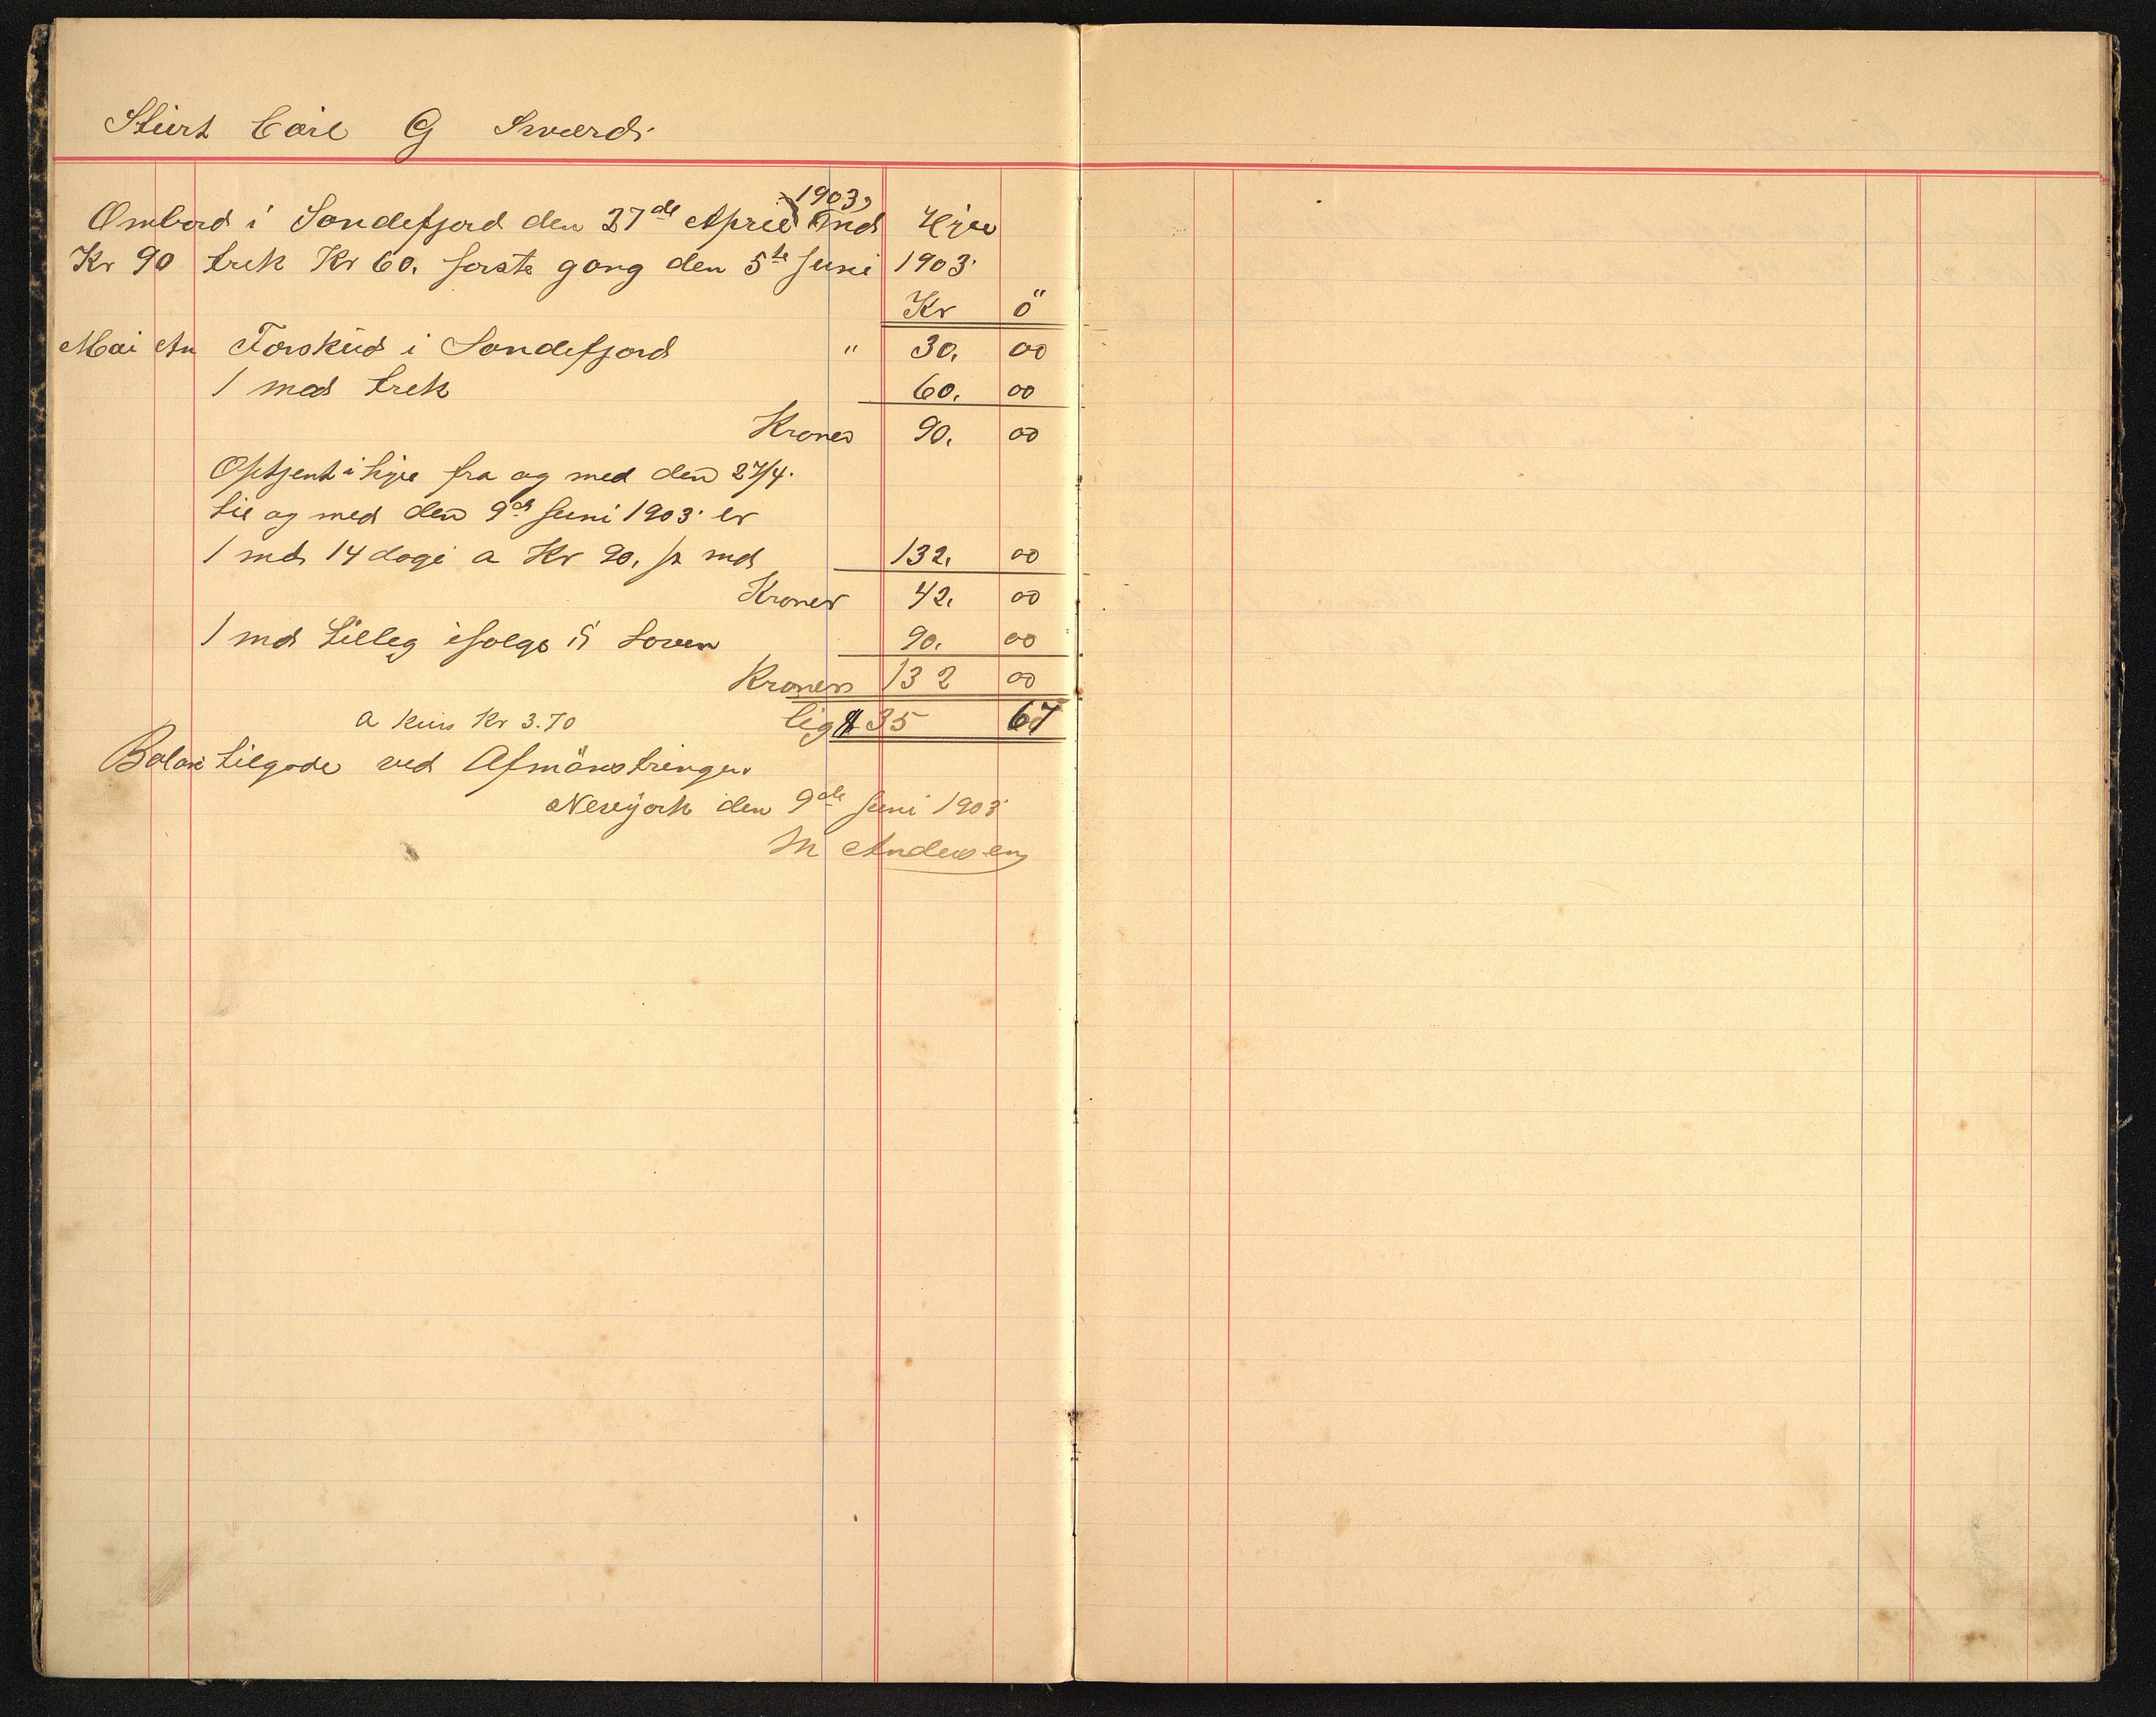 Stuert Carl G Sværd.
Ombord i Sandefjord den 27de April 1903, Mnd Hyre
Kr 90 trek Kr 60. første gang den 5te Juni 1903.
Kr ö
Mai An Forskud i Sandefjord " 30. 00
1 mds trek 60. 00
Kroner 90. 00
Optjent i hyre fra og med den 27/4.
til og med den 9de Juni 1903. er
1 md 14 dage a Kr 90. p md 132. 00
Kroner 42. 00
1 mds tilleg ifølge Loven 90. 00
Kroner 132 00
a kurs Kr 3.70 lig $ 35 67
Balan tilgode ved Afmönstringen
Newyork den 9de Juni 1903
M Andersen